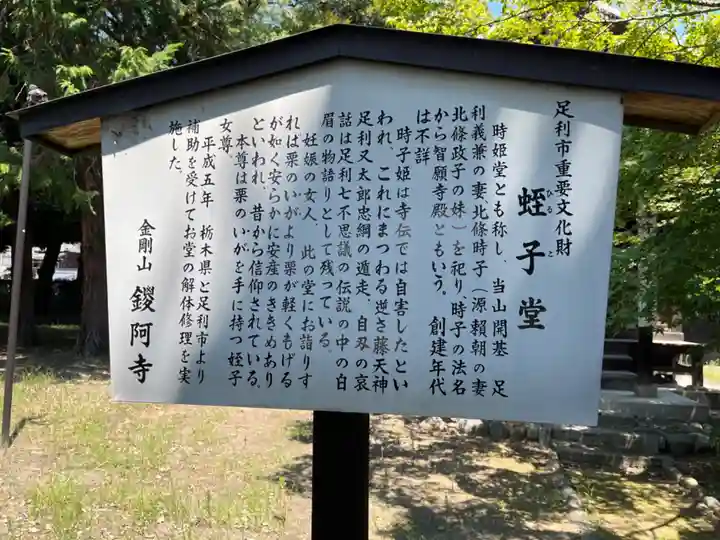 足利市重要文化財
蛭子堂
ひるこ
時姫堂とも称し、当山開基 足
利義兼の妻、北條時子(源頼朝の妻
北條政子の妹)を祀り、時子の法名
から智願寺殿ともいう。 創建年代
は不詳
時子姫は寺伝では自害したとい
われ、これにまつわる逆さ藤天神
足利又太郎忠綱の遁走、自刃の哀
話は足利七不思議の伝説の中の白
眉の物語りとして残っている。
妊娠の女人、此の堂にお詣りす
れは栗のいがより栗が軽くもげる
が如く安らかに安産のききめあり
といわれ、昔から信仰されている。
本尊は栗のいがを手に持つ蛭子
女尊。
平成五年 栃木県と足利市より
補助を受けてお堂の解体修理を実
施した。
金剛山 鑁阿寺